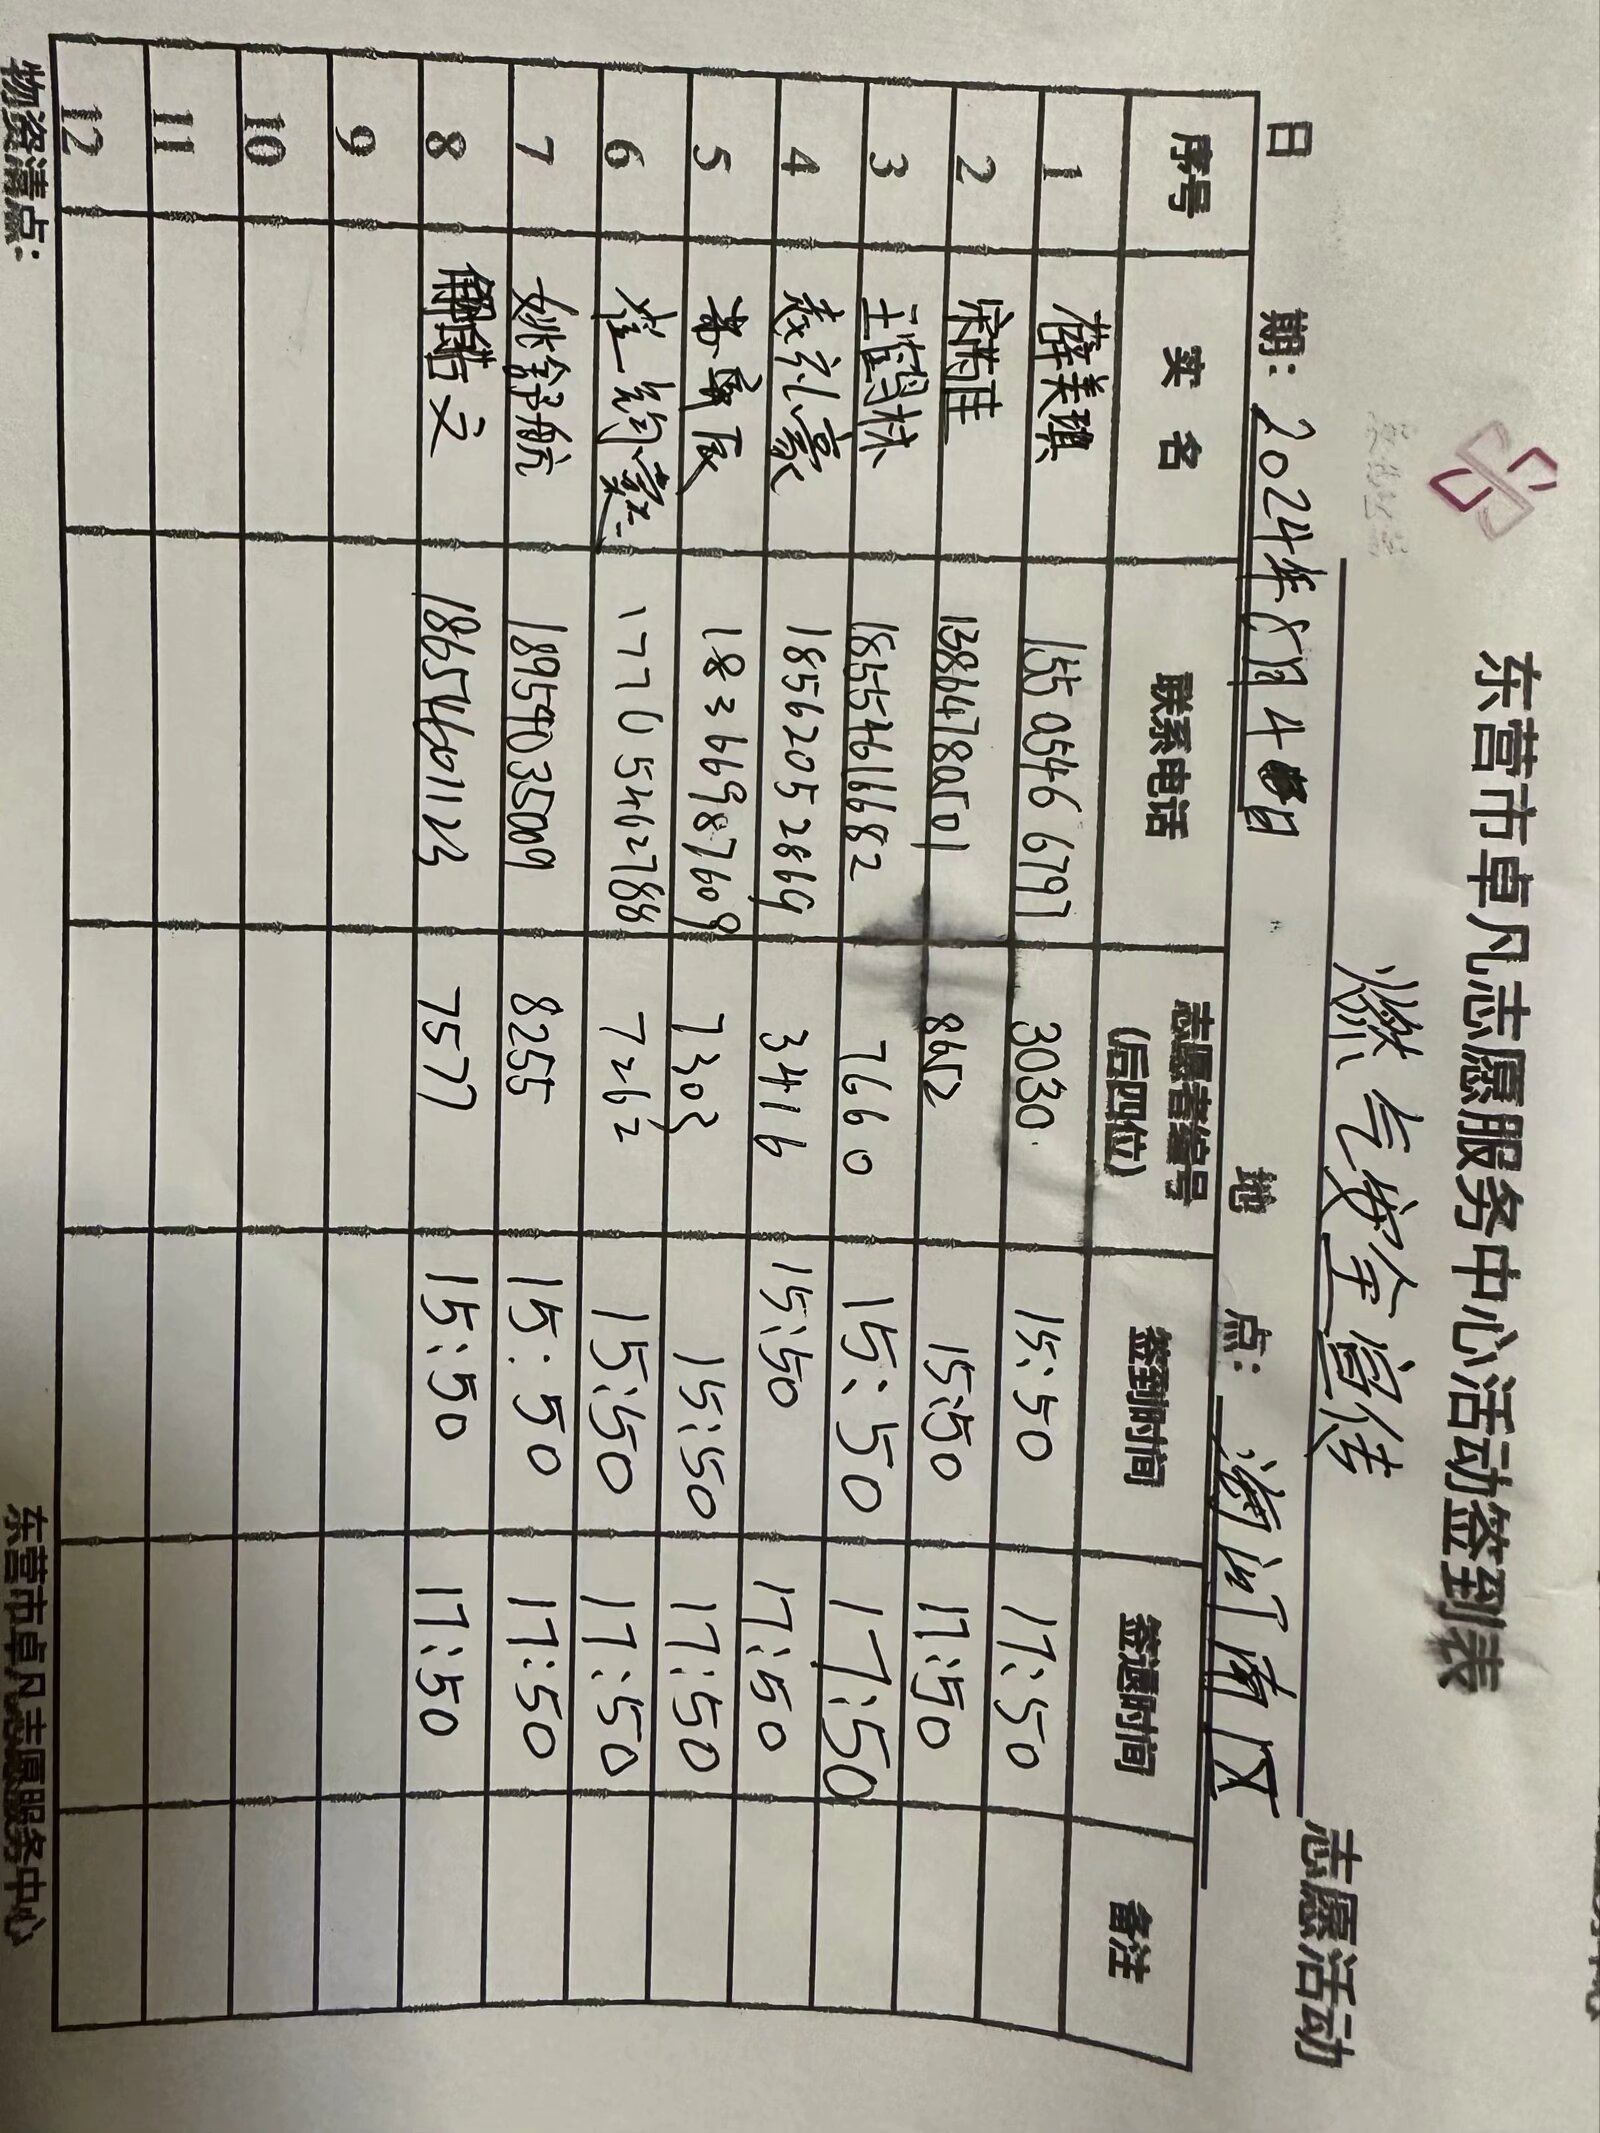 东营市卓凡志愿服务中心活动签到表
燃气安全宣传 志愿活动
日 期：2024年8月4日 地 点：渤海南区
序号 实 名 联系电话 志愿者编号(后四位) 签到时间 签退时间 备注
1 薛美琪 155 0546 6797 3030 15:50 17:50
2 15:50 17:50
3 18555461682 7660 15:50 17:50
4 18562052869 3416 15:50 17:50
5 18366987609 7303 15:50 17:50
6 17705462788 7262 15:50 17:50
7 姚舒航 18954035009 8255 15:50 17:50
8 解皓文 7577 15:50 17:50
9
10
11
12
物资清点：
东营市卓凡志愿服务中心